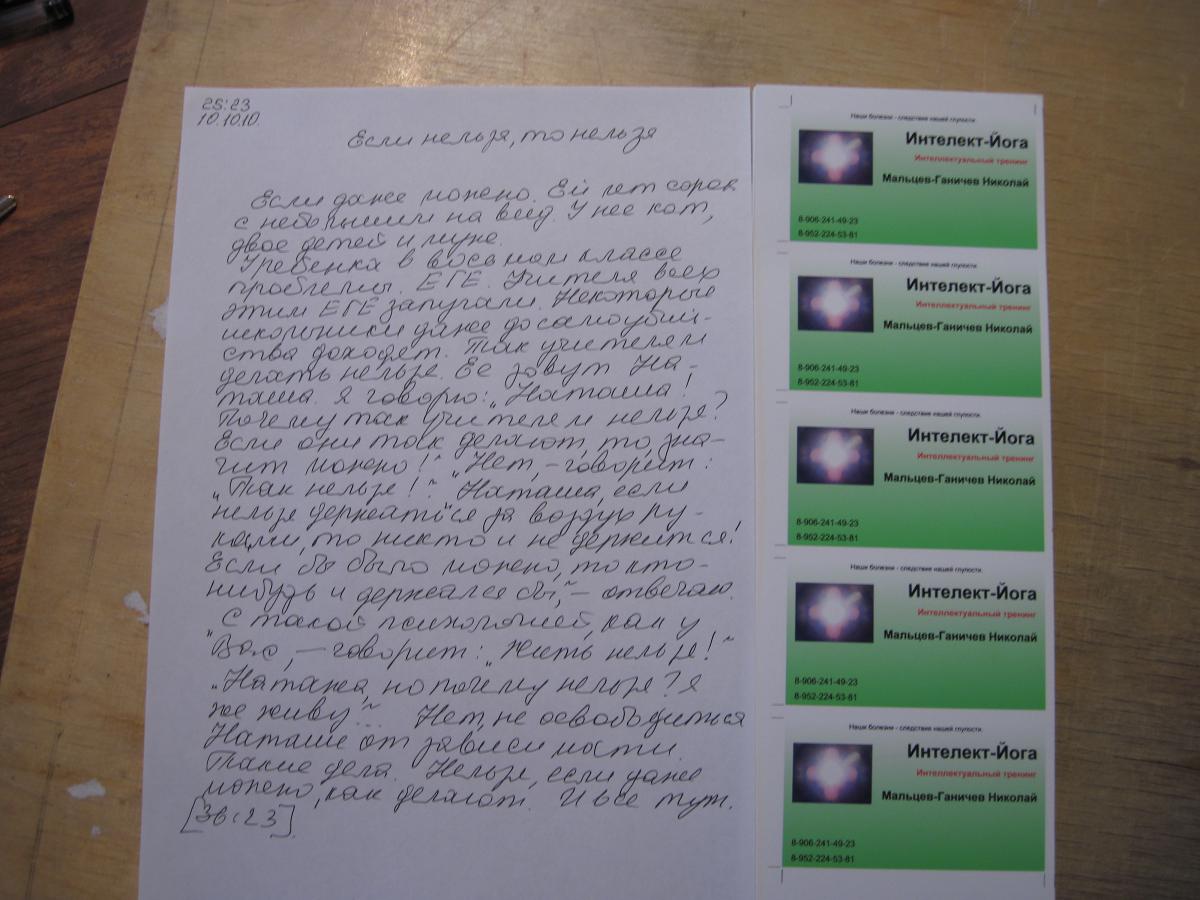 25:23
10.10.10.
Если нельзя, то нельзя
Если даже можно. Ей лет сорок
с небольшим на вид. У нее кот,
двое детей и муж.
У ребенка в восьмом классе
проблемы. ЕГЭ. Учителя всех
этим ЕГЭ запугали. Некоторые
школьники даже до самоубий-
ства доходят. Так учителям
делать нельзя. Ее зовут На-
таша. Я говорю: „Наташа!
Почему так учителям нельзя?
Если они так делают, то, зна-
чит можно!“ „Нет, – говорит:
„Так нельзя!“ „Наташа, если
нельзя держаться за воздух ру-
ками, то никто и не держится!
Если бы было можно, то кто-
нибудь и держался бы,“ – отвечаю.
„С такой психологией, как у
Вас, – говорит: „Жить нельзя!“
„Наташа, но почему нельзя? Я
же живу“... Нет, не освободиться
Наташе от зависимости.
Такие дела. Нельзя, если даже
можно, как делают. И все тут.
[36:23]
Наши болезни - следствие нашей глупости.
Интелект-Йога
Интеллектуальный тренинг
Мальцев-Ганичев Николай
8-906-241-49-23
8-952-224-53-81
Наши болезни - следствие нашей глупости.
Интелект-Йога
Интеллектуальный тренинг
Мальцев-Ганичев Николай
8-906-241-49-23
8-952-224-53-81
Наши болезни - следствие нашей глупости.
Интелект-Йога
Интеллектуальный тренинг
Мальцев-Ганичев Николай
8-906-241-49-23
8-952-224-53-81
Наши болезни - следствие нашей глупости.
Интелект-Йога
Интеллектуальный тренинг
Мальцев-Ганичев Николай
8-906-241-49-23
8-952-224-53-81
Наши болезни - следствие нашей глупости.
Интелект-Йога
Интеллектуальный тренинг
Мальцев-Ганичев Николай
8-906-241-49-23
8-952-224-53-81